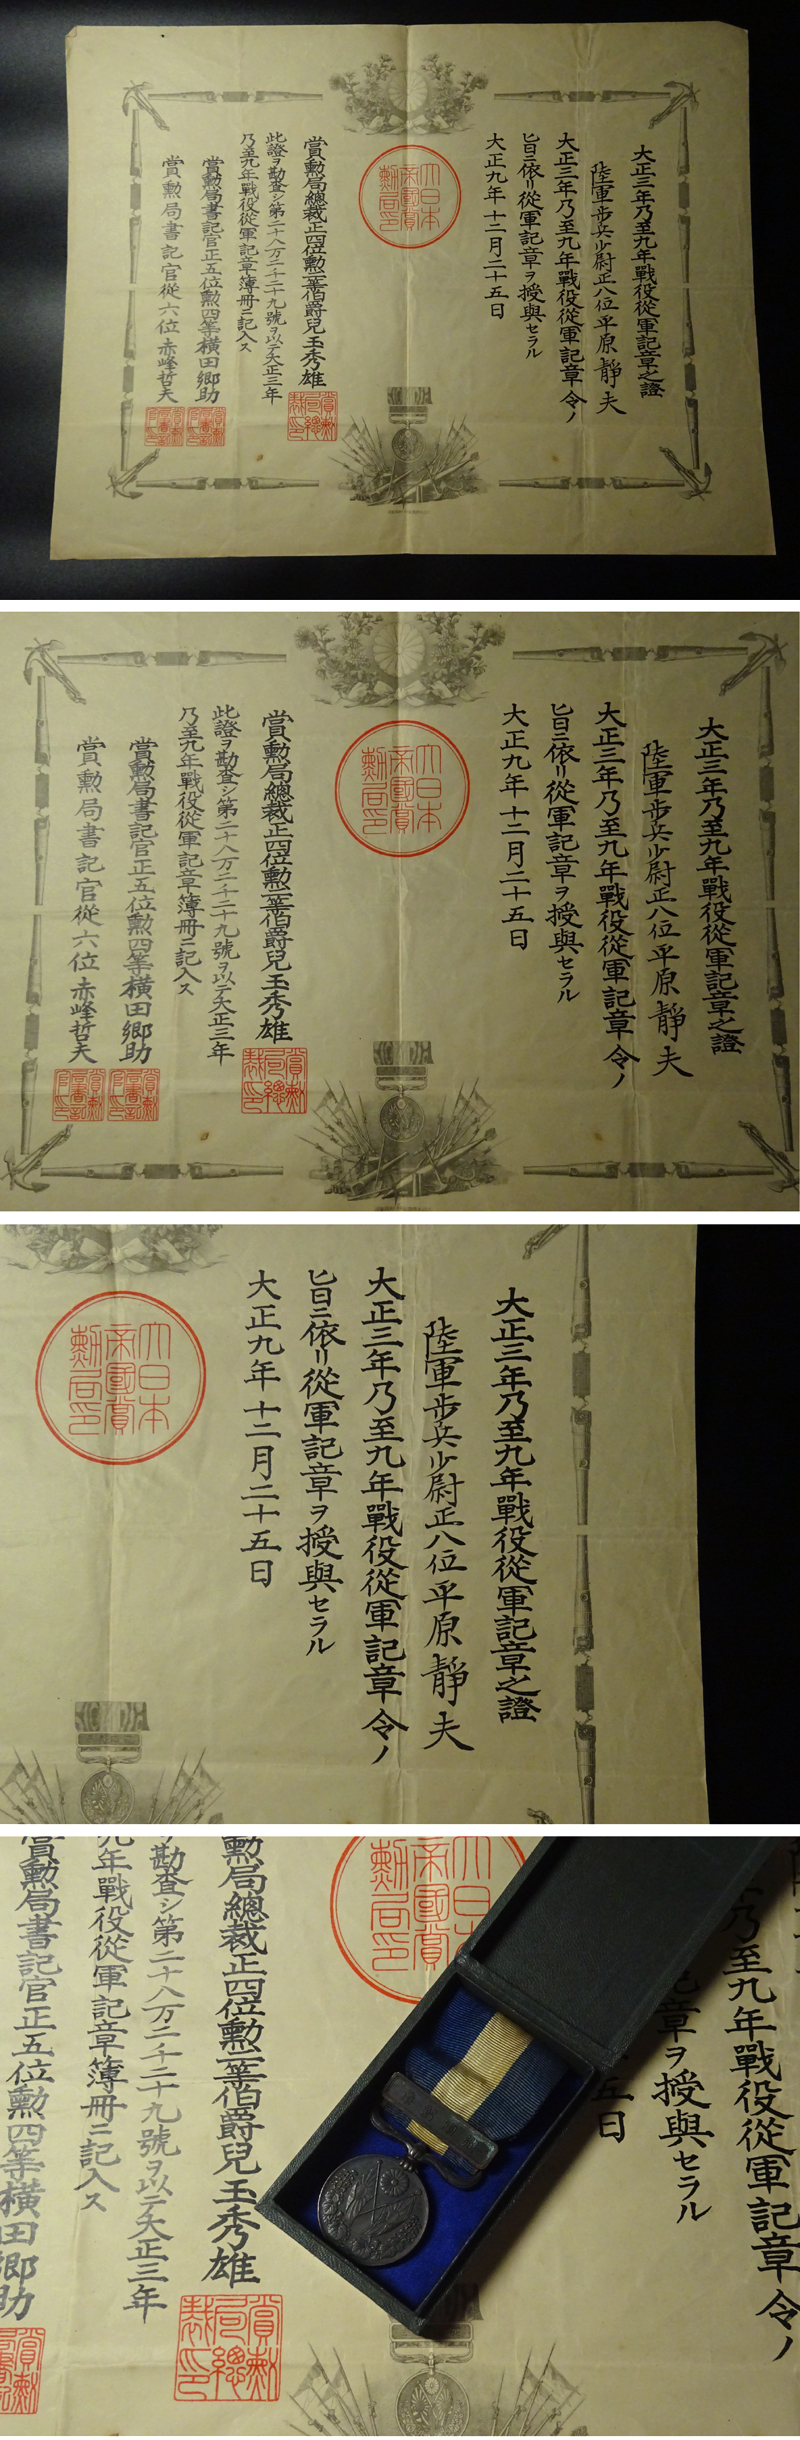 大正三年乃至九年戰役從軍記章之證
陸軍歩兵少尉正八位平原靜夫
大正三年乃至九年戰役從軍記章令ノ
旨ニ依リ從軍記章ヲ授與セラル
大正九年十二月二十五日
大日本帝國賞勳局印
賞勲局總裁正四位勲二等伯爵兒玉秀雄
此證ヲ勘査シ第二十八万二千二十九號ヲ以テ大正三年
乃至九年戰役從軍記章簿冊ニ記入ス
賞勲局書記官正五位勲四等横田郷助
賞勲局書記官從六位赤峰哲夫
大正三年乃至九年戰役從軍記章之證
陸軍歩兵少尉正八位平原靜夫
大正三年乃至九年戰役從軍記章令ノ
旨ニ依リ從軍記章ヲ授與セラル
大正九年十二月二十五日
大日本帝國賞勳局印
賞勲局總裁正四位勲二等伯爵兒玉秀雄
此證ヲ勘査シ第二十八万二千二十九號ヲ以テ大正三年
乃至九年戰役從軍記章簿冊ニ記入ス
賞勲局書記官正五位勲四等横田郷助
賞勲局書記官從六位赤峰哲夫
大正三年乃至九年戰役從軍記章之證
陸軍歩兵少尉正八位平原靜夫
大正三年乃至九年戰役從軍記章令ノ
旨ニ依リ從軍記章ヲ授與セラル
大正九年十二月二十五日
大日本帝國賞勳局印
乃至九年戰役從軍記章令ノ
記章ヲ授與セラル
五日
勲局總裁正四位勲二等伯爵兒玉秀雄
勘査シ第二十八万二千二十九號ヲ以テ大正三年
九年戰役從軍記章簿冊ニ記入ス
賞勲局書記官正五位勲四等横田郷助